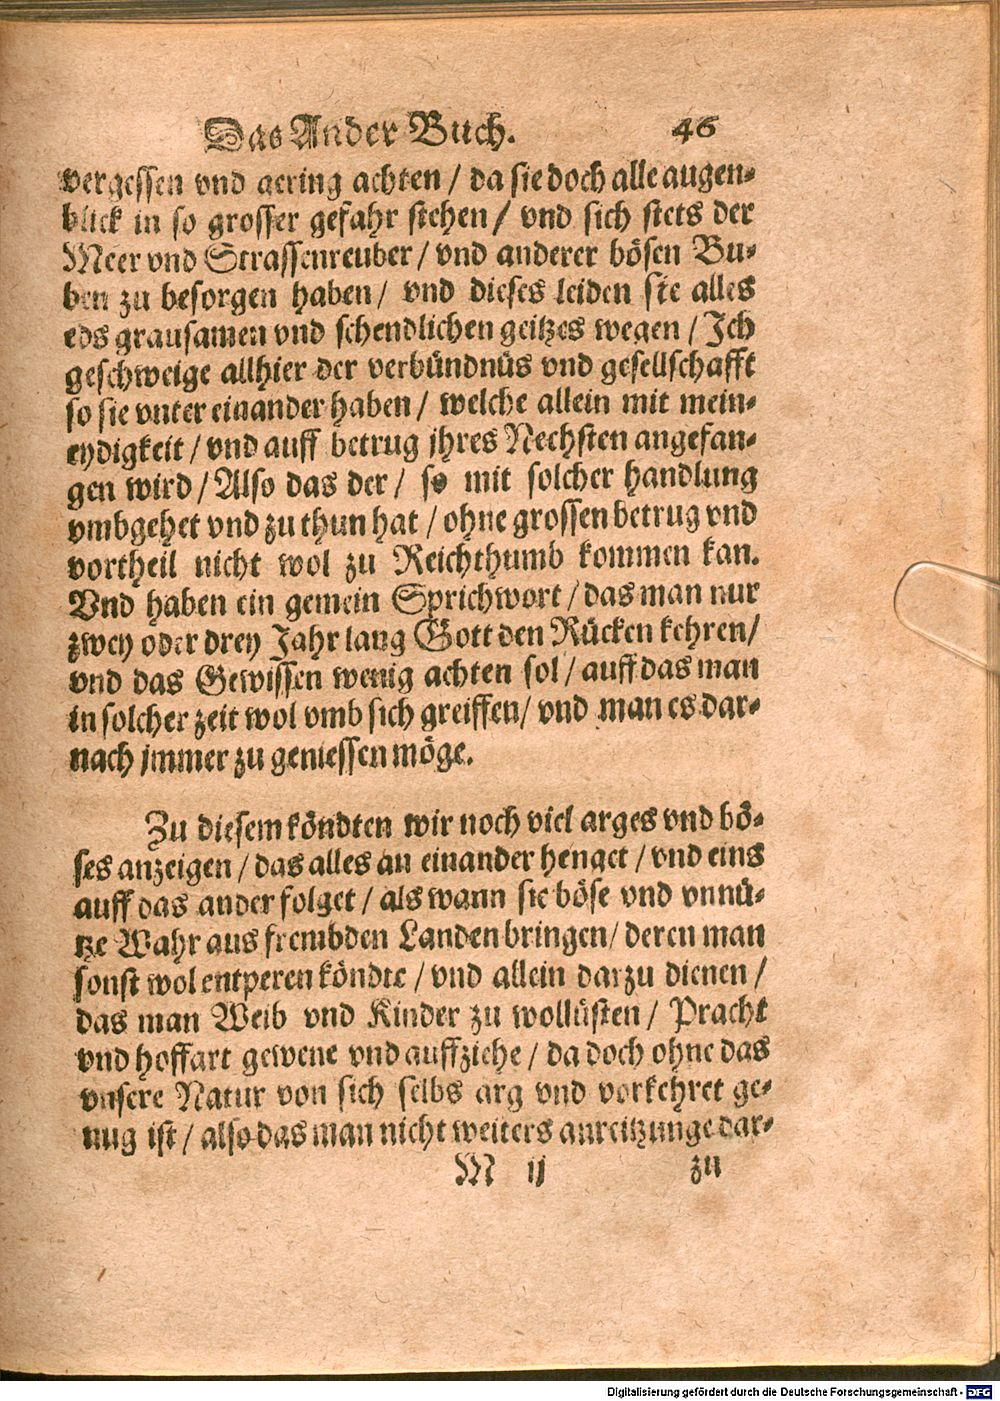 Das Ander Buch. 46
vergessen vnd gering achten / da sie doch alle augen-
blick in so grosser gefahr stehen / vnd sich stets der
Meer vnd Strassenreuber / vnd anderer bösen Bu-
ben zu besorgen haben / vnd dieses leiden sie alles
eds grausamen vnd schendlichen geitzes wegen / Ich
geschweige allhier der verbündnüs vnd gesellschafft
so sie vnter einander haben / welche allein mit mein-
eydigkeit / vnd auff betrug jhres Nechsten angefan-
gen wird / Also das der / so mit solcher handlung
vmbgehet vnd zu thun hat / ohne grossen betrug vnd
vortheil nicht wol zu Reichthumb kommen kan.
Vnd haben ein gemein Sprichwort / das man nur
zwey oder drey Jahr lang Gott den Rücken kehren /
vnd das Gewissen wenig achten sol / auff das man
in solcher zeit wol vmb sich greiffen / vnd man es dar-
nach jmmer zu geniessen möge.
Zu diesem köndten wir noch viel arges vnd bö-
ses anzeigen / das alles an einander henget / vnd eins
auff das ander folget / als wann sie böse vnd vnnü-
tze Wahr aus frembden Landen bringen / deren man
sonst wol entperen köndte / vnd allein darzu dienen /
das man Weib vnd Kinder zu wollüsten / Pracht
vnd hoffart gewene vnd auffziehe / da doch ohne das
vnsere Natur von sich selbs arg vnd vorkehret ge-
nug ist / also das man nicht weiters anreitzunge dar-
M ij zu
Digitalisierung gefördert durch die Deutsche Forschungsgemeinschaft - DFG